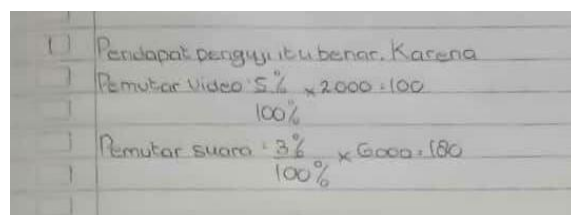 1) Pendapat penguji itu benar. Karena
Pemutar Video = 5% × 2000 = 100
100%
Pemutar suara = 3% × 6000 = 180
100%